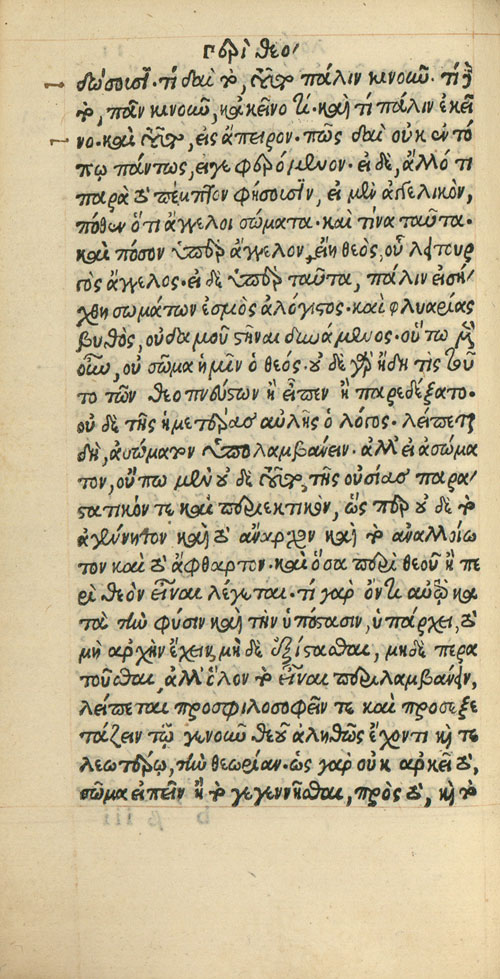 περὶ θεο
δώσουσι. τί δαὶ τὸ, τοῦτο πάλιν κινοῦν. τί δὲ
τὸ, πᾶν κινοῦν, κἀκεῖνο τί. καὶ τί πάλιν ἐκεῖ
νο. καὶ τοῦτο, εἰς ἄπειρον. πῶς δαὶ οὐκ ἐν τό
πῳ πάντως, εἴγε φερόμενον. εἰ δὲ, ἄλλό τι
παρὰ τὸ πέμπτον φήσουσιν, εἰ μὲν ἀγγελικὸν,
πόθεν ὅτι ἄγγελοι σώματα. καὶ τίνα ταῦτα.
καὶ πόσον ὑπὲρ ἄγγελον, εἴη θεὸς, οὗ λειτουρ
γὸς ἄγγελος. εἰ δὲ ὑπὲρ ταῦτα, πάλιν εἰσή
χθη σωμάτων ἑσμὸς ἀλόγιστος. καὶ φλυαρίας
βυθὸς, οὐδαμοῦ στῆναι δυνάμενος. οὕτω μὲν
οὖν, οὐ σῶμα ἡμῖν ὁ θεός. οὐδὲ γὰρ ἤδη τὶς τοῦ
το τῶν θεοπνεύστων ἢ εἶπεν ἢ παρεδέξατο.
οὐδὲ τῆς ἡμετέρας αὐλῆς ὁ λόγος. λείπεται
δὴ, ἀσώματον ὑπολαμβάνειν. ἀλλ' εἰ ἀσώμα
τον, οὔπω μὲν οὐδὲ τοῦτο, τῆς οὐσίας παρα
στατικόν τε καὶ περιεκτικὸν, ὥσπερ οὐδὲ τὸ
ἀγέννητον καὶ τὸ ἄναρχον καὶ τὸ ἀναλλοίω
τον καὶ τὸ ἄφθαρτον. καὶ ὅσα περὶ θεοῦ ἢ πε
ρὶ θεὸν εἶναι λέγεται. τί γὰρ ὄντι αὐτῷ κα
τὰ τὴν φύσιν καὶ τὴν ὑπόστασιν, ὑπάρχει, τὸ
μὴ ἀρχὴν ἔχειν, μηδὲ ἐξίστασθαι, μηδὲ περα
τοῦσθαι, ἀλλ' ὅλον τὸ εἶναι περιλαμβάνειν,
λείπεται προσφιλοσοφεῖν τε καὶ προσεξε
τάζειν τῷ γε νοῦν θεοῦ ἀληθῶς ἔχοντι καὶ τε
λεωτέρῳ, τὴν θεωρίαν. ὡς γὰρ οὐκ ἀρκεῖ τὸ,
σῶμα εἰπεῖν ἢ τὸ γεγεννῆσθαι, πρὸς τὸ, καὶ τὸ